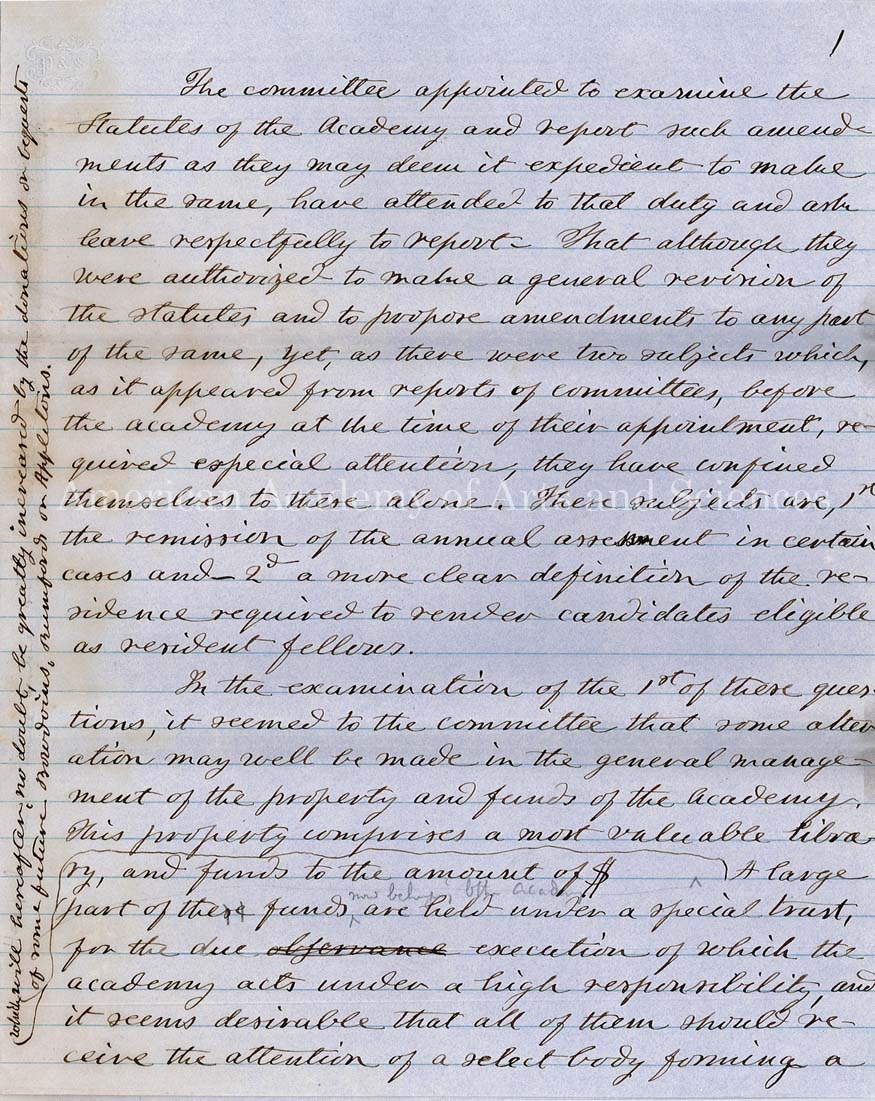 1
The committee appointed to examine the
Statutes of the Academy and report such amend-
ments as they may deem it expedient to make
in the same, have attended to that duty and ask
leave respectfully to report - That although they
were authorized to make a general revision of
the statutes and to propose amendments to any part
of the same, yet, as there were two subjects which,
as it appeared from reports of committees, before
the academy at the time of their appointment, re-
quired especial attention, they have confined
themselves to these alone. These subjects are, 1st
the remission of the annual assessment in certain
cases and - 2d a more clear definition of the re-
sidence required to render candidates eligible
as resident fellows.
In the examination of the 1st of these ques-
tions, it seemed to the committee that some alter
ation may well be made in the general manage-
ment of the property and funds of the Academy.
This property comprises a most valuable libra-
ry, and funds to the amount of $ A large
now belong
part of these funds are held under a special trust,
for the due observance execution of which the
academy acts under a high responsibility, and
it seems desirable that all of them should re-
ceive the attention of a select body forming a
which will hereafter no doubt, be greatly increased by the donations or bequests
of some future Bowdoins, Rumfords or Appletons.
American Academy of Arts and Sciences